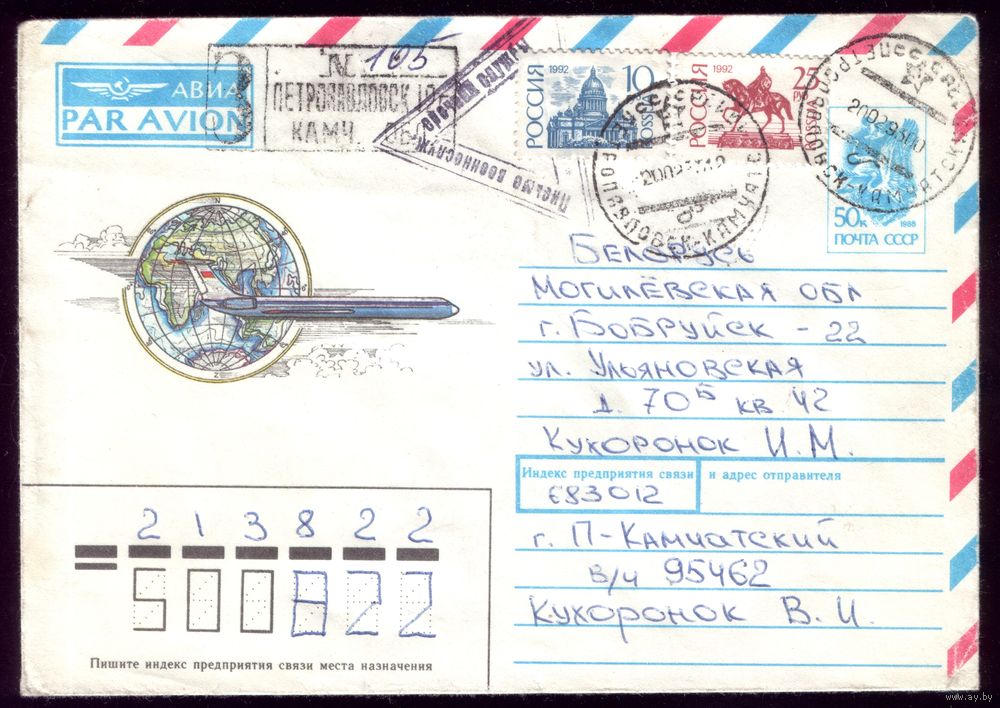 АВИА
PAR AVION
№ 105
ПЕТРОПАВЛОВСК
КАМЧ.
ПИСЬМО ВОЕННОСЛУЖ
РОССИЯ 1992 10 ROSSIJA
РОССИЯ 1992 25 ROSSIJA
ПЕТРОПАВЛОВСК-КАМЧАТСК
50к 1988
ПОЧТА СССР
Беларусь
Могилёвская обл
г. Бобруйск - 22
ул. Ульяновская
д. 70Б кв 42
Кухоронок И.М.
Индекс предприятия связи и адрес отправителя
683012
г. П-Камчатский
в/ч 95462
Кухоронок В.И.
2 1 3 8 2 2
Пишите индекс предприятия связи места назначения
www.ay.by